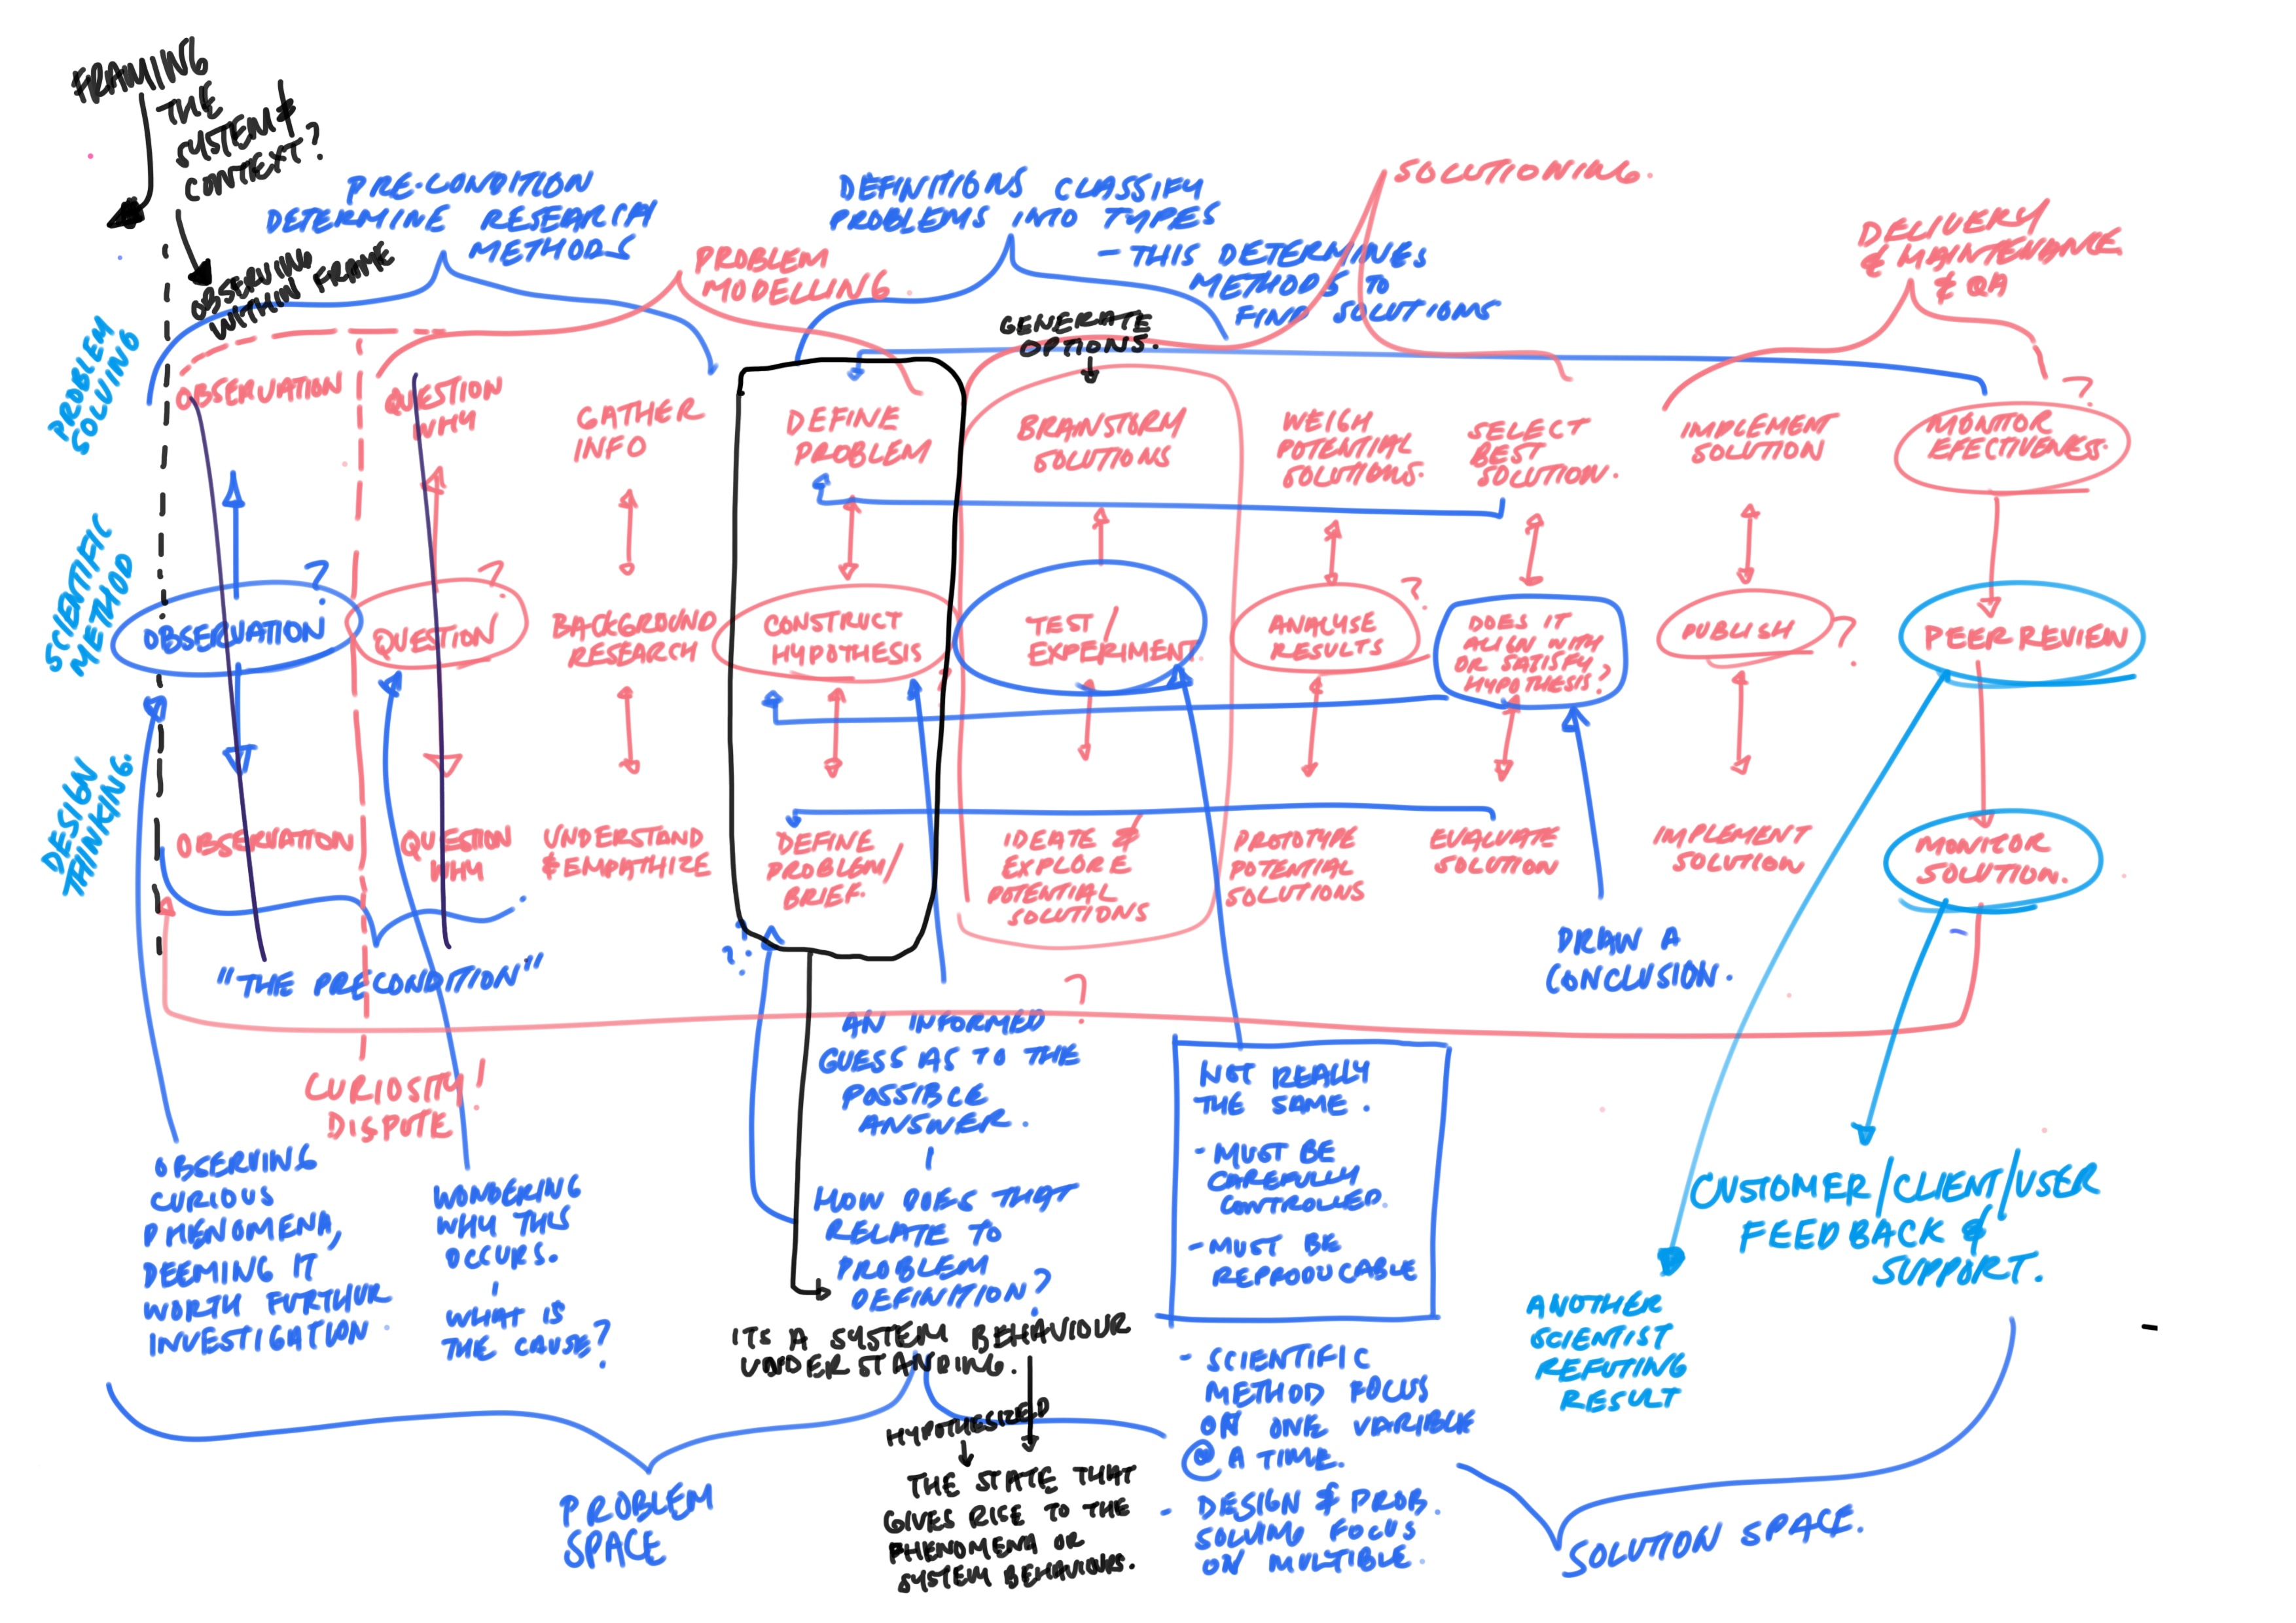 FRAMING
THE
SYSTEM &
CONTEXT?
OBSERVING
WITHIN FRAME
PRE-CONDITION
DETERMINE RESEARCH
METHODS
PROBLEM
MODELLING
DEFINITIONS CLASSIFY
PROBLEMS INTO TYPES
- THIS DETERMINES
METHODS TO
FIND SOLUTIONS
SOLUTIONING.
DELIVERY
& MAINTENANCE
& QA
GENERATE
OPTIONS.
PROBLEM
SOLVING
OBSERVATION
QUESTION
WHY
GATHER
INFO
DEFINE
PROBLEM
BRAINSTORM
SOLUTIONS
WEIGH
POTENTIAL
SOLUTIONS.
SELECT
BEST
SOLUTION.
IMPLEMENT
SOLUTION
?
MONITOR
EFECTIVENESS.
SCIENTIFIC
METHOD
OBSERVATION
?
QUESTION
?
BACKGROUND
RESEARCH
CONSTRUCT
HYPOTHESIS
TEST/
EXPERIMENT
ANALYSE
RESULTS
?
DOES IT
ALIGN WITH
OR SATISFY
HYPOTHESIS?
PUBLISH
?
PEER REVIEW
DESIGN
THINKING.
OBSERVATION
QUESTION
WHY
UNDERSTAND
& EMPATHIZE
DEFINE
PROBLEM/
BRIEF.
IDEATE &
EXPLORE
POTENTIAL
SOLUTIONS
PROTOTYPE
POTENTIAL
SOLUTIONS
EVALUATE
SOLUTION
IMPLEMENT
SOLUTION
MONITOR
SOLUTION.
"THE PRECONDITION"
?
?
DRAW A
CONCLUSION.
CURIOSITY!
DISPUTE
OBSERVING
CURIOUS
PHENOMENA,
DEEMING IT
WORTH FURTHUR
INVESTIGATION
WONDERING
WHY THIS
OCCURS.
WHAT IS
THE CAUSE?
AN INFORMED
GUESS AS TO THE
POSSIBLE
ANSWER.
HOW DOES THAT
RELATE TO
PROBLEM
DEFINITION?
ITS A SYSTEM BEHAVIOUR
UNDERSTANDING.
HYPOTHESIZED
THE STATE THAT
GIVES RISE TO THE
PHENOMENA OR
SYSTEM BEHAVIOURS.
NOT REALLY
THE SAME.
- MUST BE
CAREFULLY
CONTROLLED.
- MUST BE
REPRODUCABLE
- SCIENTIFIC
METHOD FOCUS
ON ONE VARIBLE
@ A TIME.
- DESIGN & PROB.
SOLVING FOCUS
ON MULTIBLE.
ANOTHER
SCIENTIST
REFUTING
RESULT
CUSTOMER/CLIENT/USER
FEEDBACK &
SUPPORT.
PROBLEM
SPACE
SOLUTION SPACE.